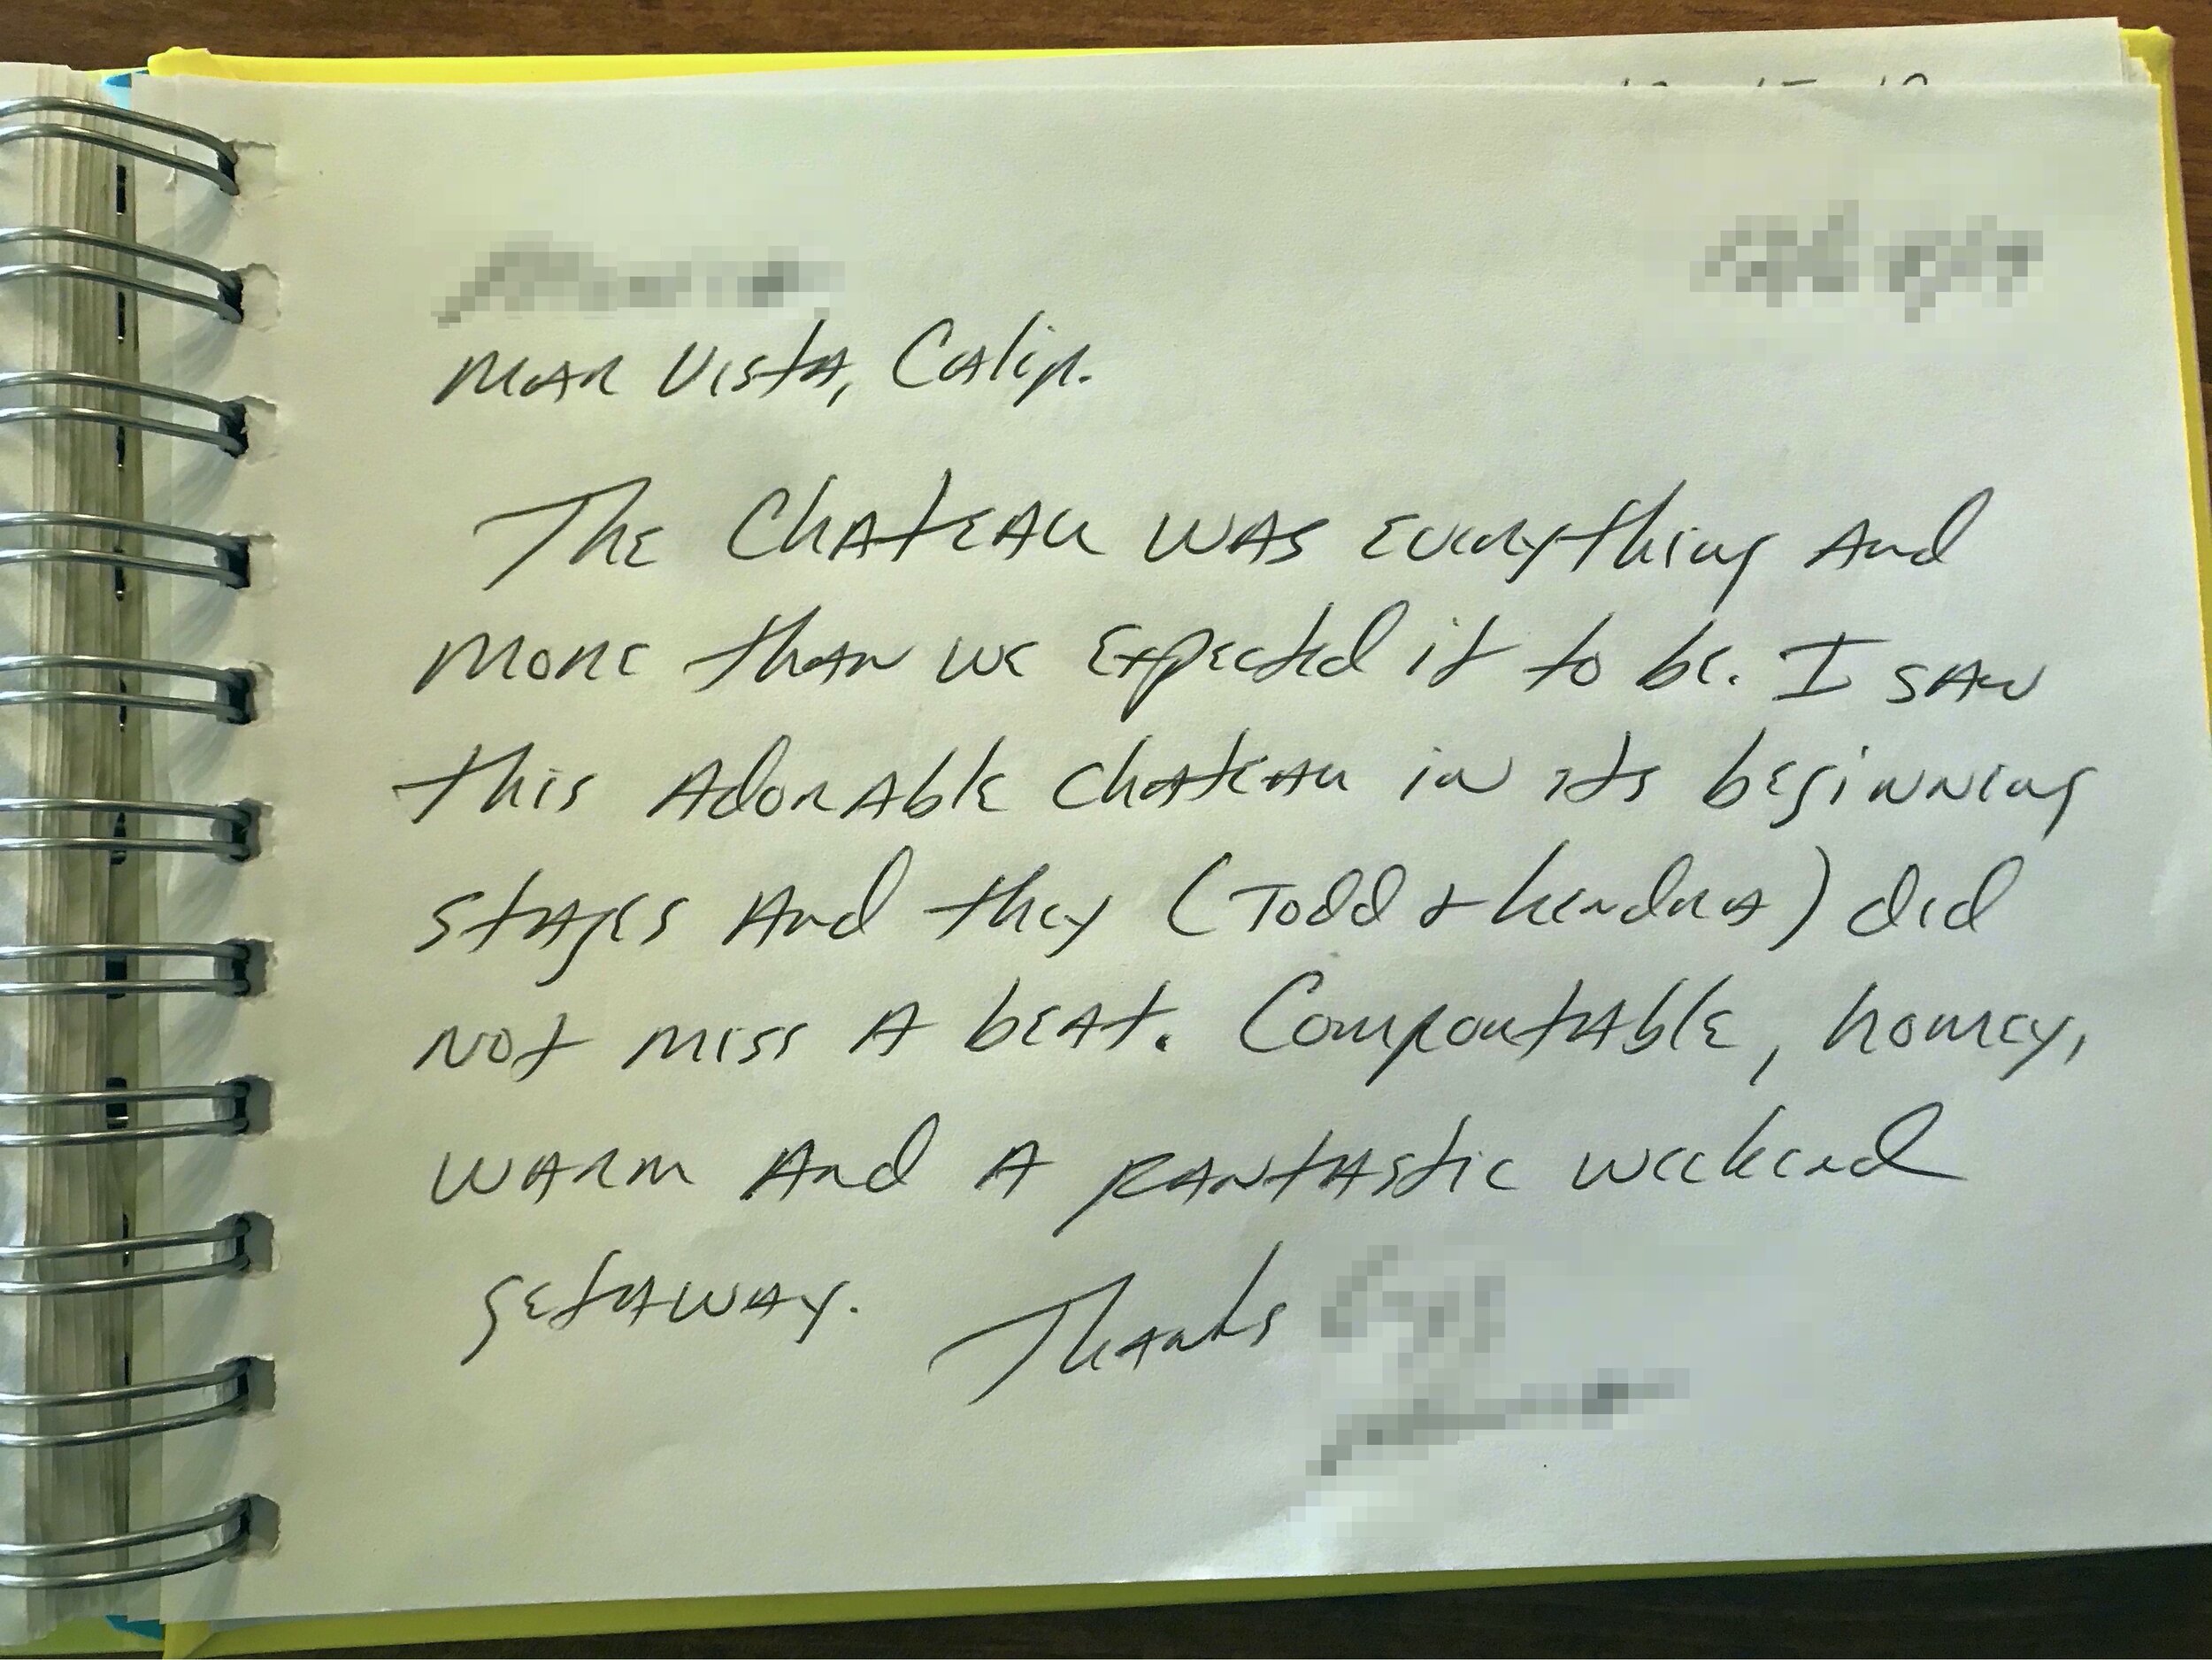 Mar Vista, Calif.
The Chateau was everything and
more than we expected it to be. I saw
this adorable chateau in its beginning
stages and they (Todd & Kendra) did
not miss a beat. Comfortable, homey,
warm and a fantastic weekend
getaway. Thanks